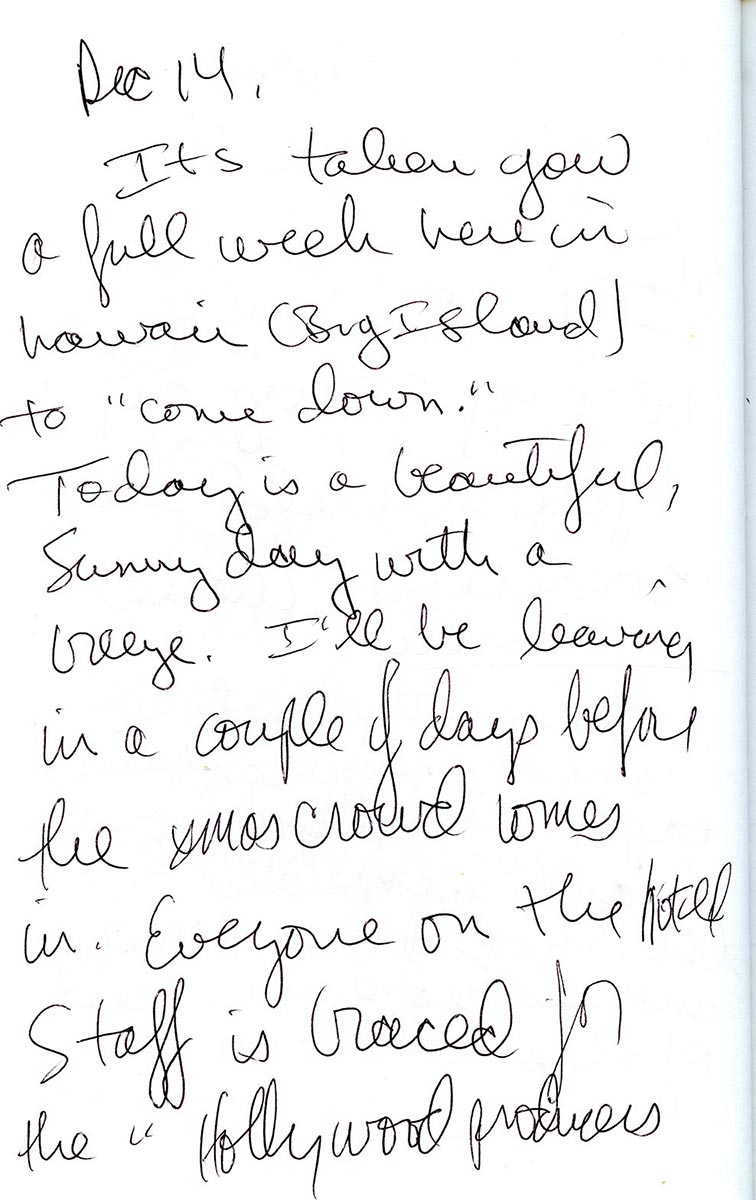 Dec 14.
Its taken you
a full week here in
hawaii (Big Island)
to "come down."
Today is a beautiful,
Sunny day with a
breeze. I'll be leaving
in a couple of days before
the xmas crowd comes
in. Everyone on the hotel
Staff is braced for
the "Hollywood producers